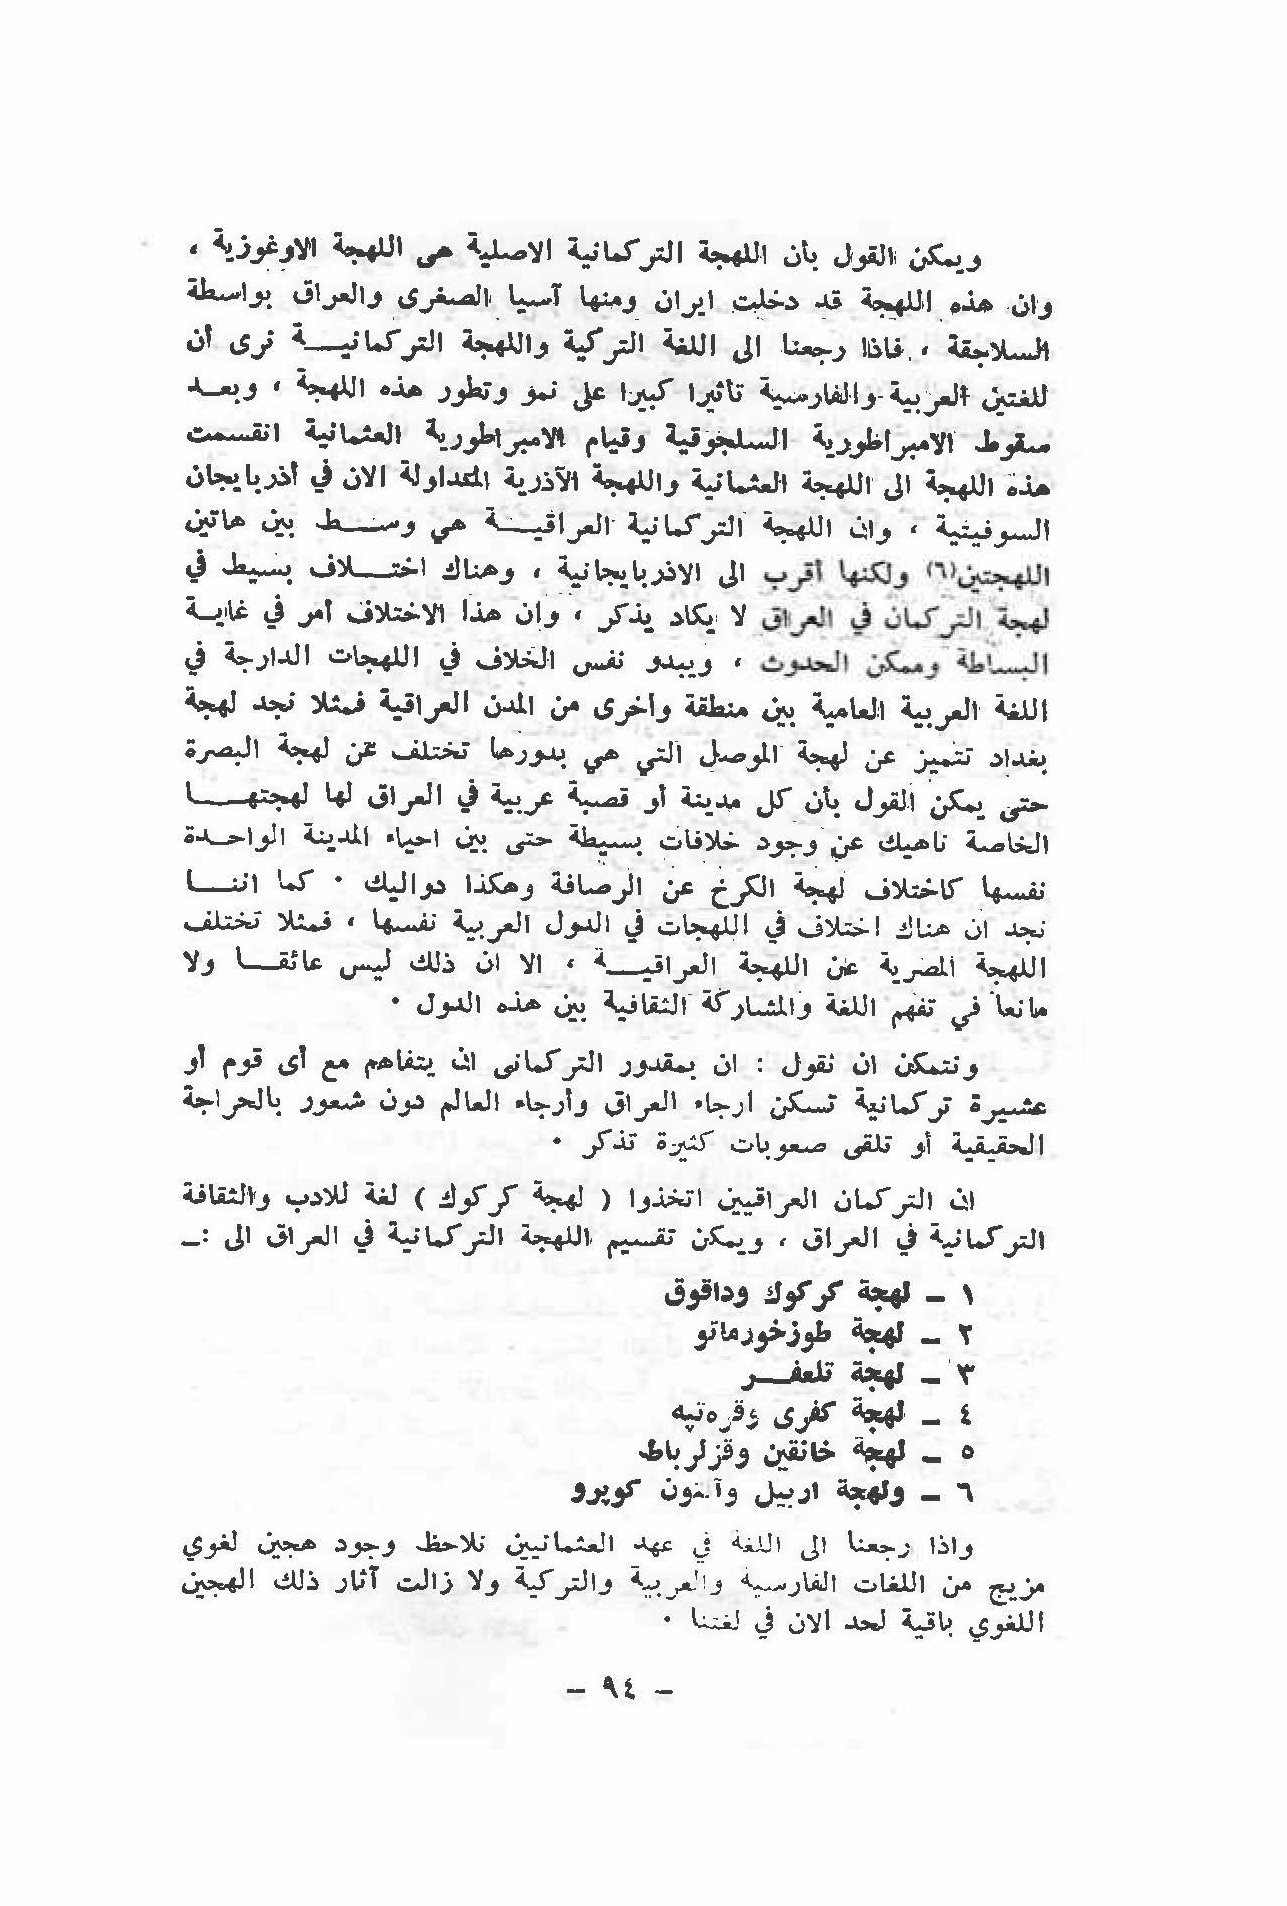 ويمكن القول بأن اللهجة التركمانية الاصلية هي اللهجة الاوغوزية ،
وان هذه اللهجة قد دخلت ايران ومنها آسيا الصغرى والعراق بواسطة
السلاجقة ، فاذا رجعنا الى اللغة التركية واللهجة التركمانيـــة نرى أن
للغتين العربية والفارسية تأثيرا كبيرا على نمو وتطور هذه اللهجة ، وبعــد
سقوط الامبراطورية السلجوقية وقيام الامبراطورية العثمانية انقسمت
هذه اللهجة الى اللهجة العثمانية واللهجة الآذرية المتداولة الان في أذربايجان
السوفيتية ، وان اللهجة التركمانية العراقيـــة هي وســـط بين هاتين
اللهجتين(٦) ولكنها أقرب الى الاذربايجانية ، وهناك اختـــلاف بسيط في
لهجة التركمان في العراق لا يكاد يذكر ، وان هذا الاختلاف أمر في غايـة
البساطة وممكن الحدوث ، ويبدو نفس الخلاف في اللهجات الدارجة في
اللغة العربية العامية بين منطقة وأخرى من المدن العراقية فمثلا نجد لهجة
بغداد تتميز عن لهجة الموصل التي هي بدورها تختلف عن لهجة البصرة
حتى يمكن القول بأن كل مدينة أو قصبة عربية في العراق لها لهجتهـــا
الخاصة ناهيك عن وجود خلافات بسيطة حتى بين احياء المدينة الواحـدة
نفسها كاختلاف لهجة الكرخ عن الرصافة وهكذا دواليك ٠ كما اننـــا
نجد ان هناك اختلاف في اللهجات في الدول العربية نفسها ، فمثلا تختلف
اللهجة المصرية عن اللهجة العراقيـــة ، الا ان ذلك ليس عائقــا ولا
مانعا في تفهم اللغة والمشاركة الثقافية بين هذه الدول ٠
ونتمكن ان نقول : ان بمقدور التركمانى ان يتفاهم مع أى قوم أو
عشيرة تركمانية تسكن ارجاء العراق وأرجاء العالم دون شعور بالحراجة
الحقيقية أو تلقى صعوبات كثيرة تذكر ٠
ان التركمان العراقيين اتخذوا ( لهجة كركوك ) لغة للادب والثقافة
التركمانية في العراق ، ويمكن تقسيم اللهجة التركمانية في العراق الى :ـ
١ ـ لهجة كركوك وداقوق
٢ ـ لهجة طوزخورماتو
٣ ـ لهجة تلعفــر
٤ ـ لهجة كفرى وقره‌تپه
٥ ـ لهجة خانقين وقزلرباط
٦ ـ ولهجة اربيل وآلتون كوپرو
واذا رجعنا الى اللغة في عهد العثمانيين نلاحظ وجود هجين لغوي
مزيج من اللغات الفارسية والعربية والتركية ولا زالت آثار ذلك الهجين
اللغوي باقية لحد الان في لغتنا ٠
ـ ٩٤ ـ